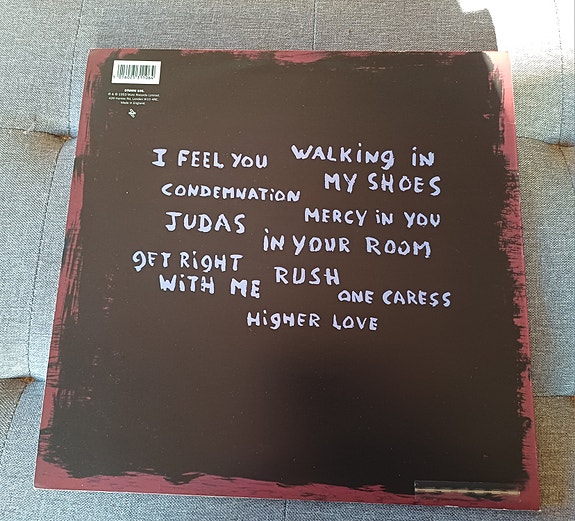 STUMM 106
℗ & © 1993 Mute Records Limited.
429 Harrow Rd, London W10 4RE.
Made in England
I FEEL YOU
WALKING iN
MY SHOES
CONDEMNATiON
MERCY iN YOU
JUDAS
iN YOUR ROOM
gET RiGHT
WiTH ME
RUSH
ONE CARESS
HiGHER LOVE